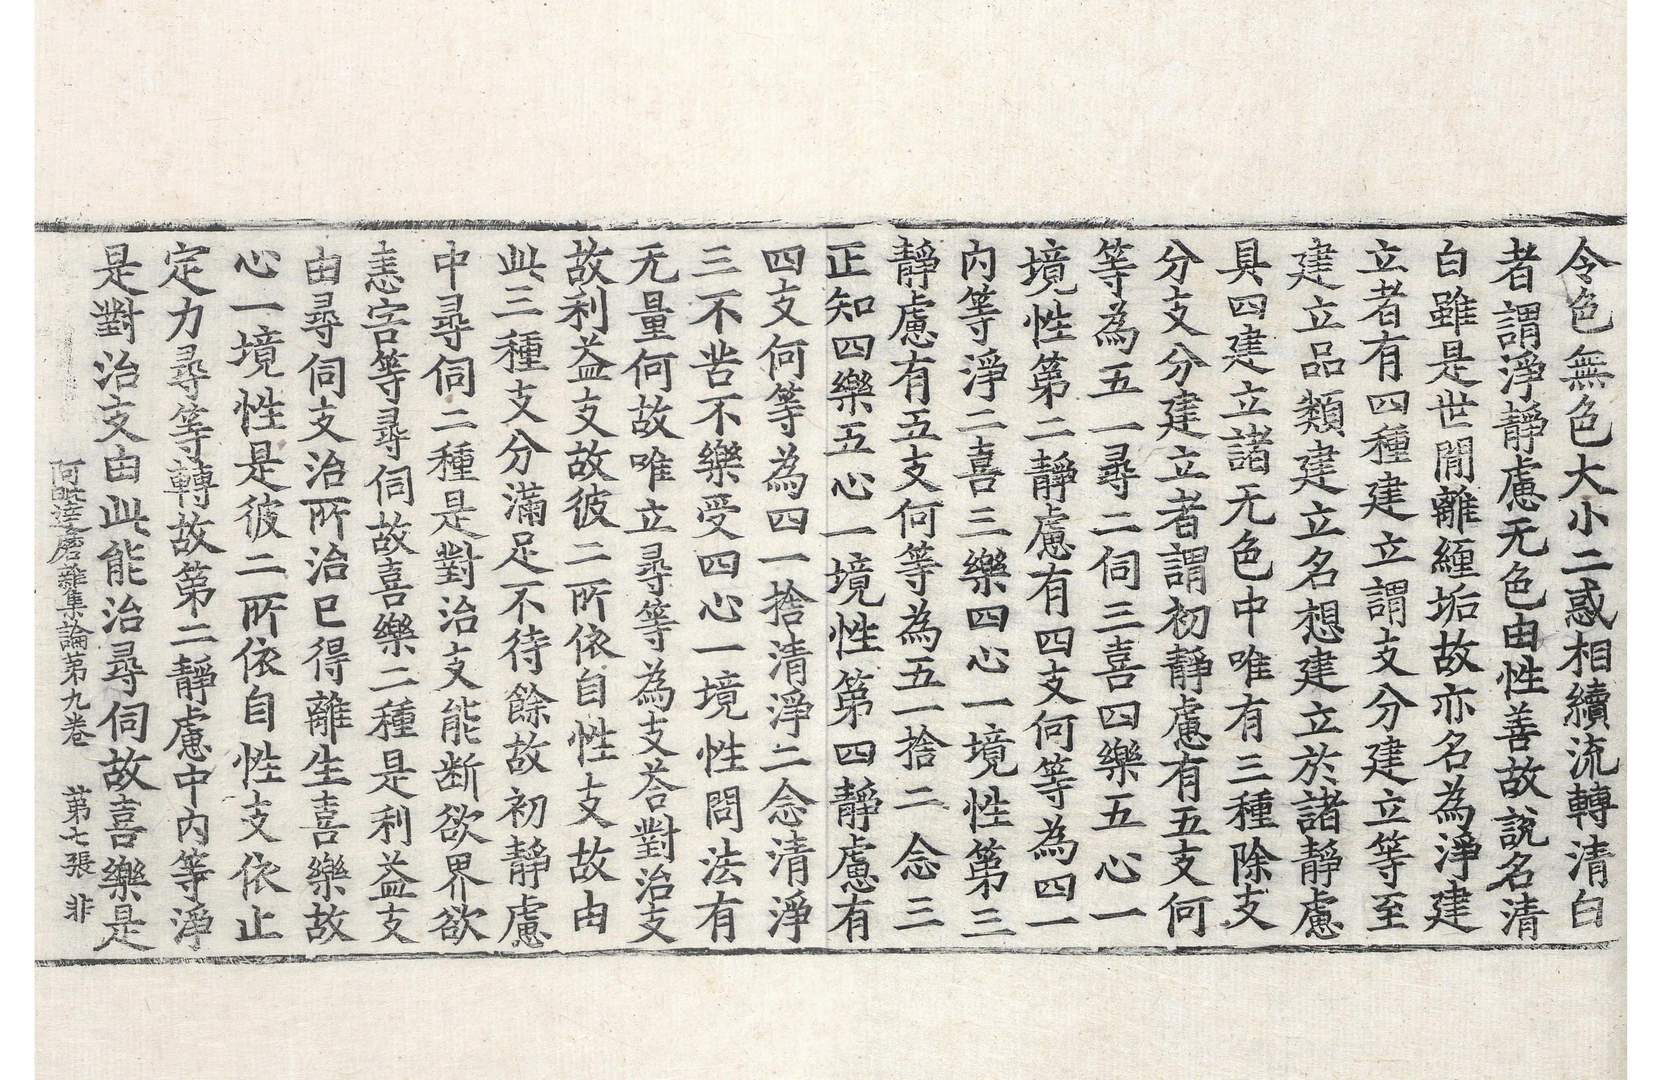 令色無色大小二惑相續流轉清白
者謂淨靜慮无色由性善故說名清
白雖是世間離纏垢故亦名為淨建
立者有四種建立謂支分建立等至
建立品類建立名想建立於諸靜慮
具四建立諸无色中唯有三種除支
分支分建立者謂初靜慮有五支何
等為五一尋二伺三喜四樂五心一
境性第二靜慮有四支何等為四一
內等淨二喜三樂四心一境性第三
靜慮有五支何等為五一捨二念三
正知四樂五心一境性第四靜慮有
四支何等為四一捨清淨二念清淨
三不苦不樂受四心一境性問法有
无量何故唯立尋等為支荅對治支
故利益支故彼二所依自性支故由
此三種支分滿足不待餘故初靜慮
中尋伺二種是對治支能断欲界欲
恚害等尋伺故喜樂二種是利益支
由尋伺支治所治已得離生喜樂故
心一境性是彼二所依自性支依止
定力尋等轉故第二靜慮中內等淨
是對治支由此能治尋伺故喜樂是
阿毗達磨雜集論第九卷 第七張 非